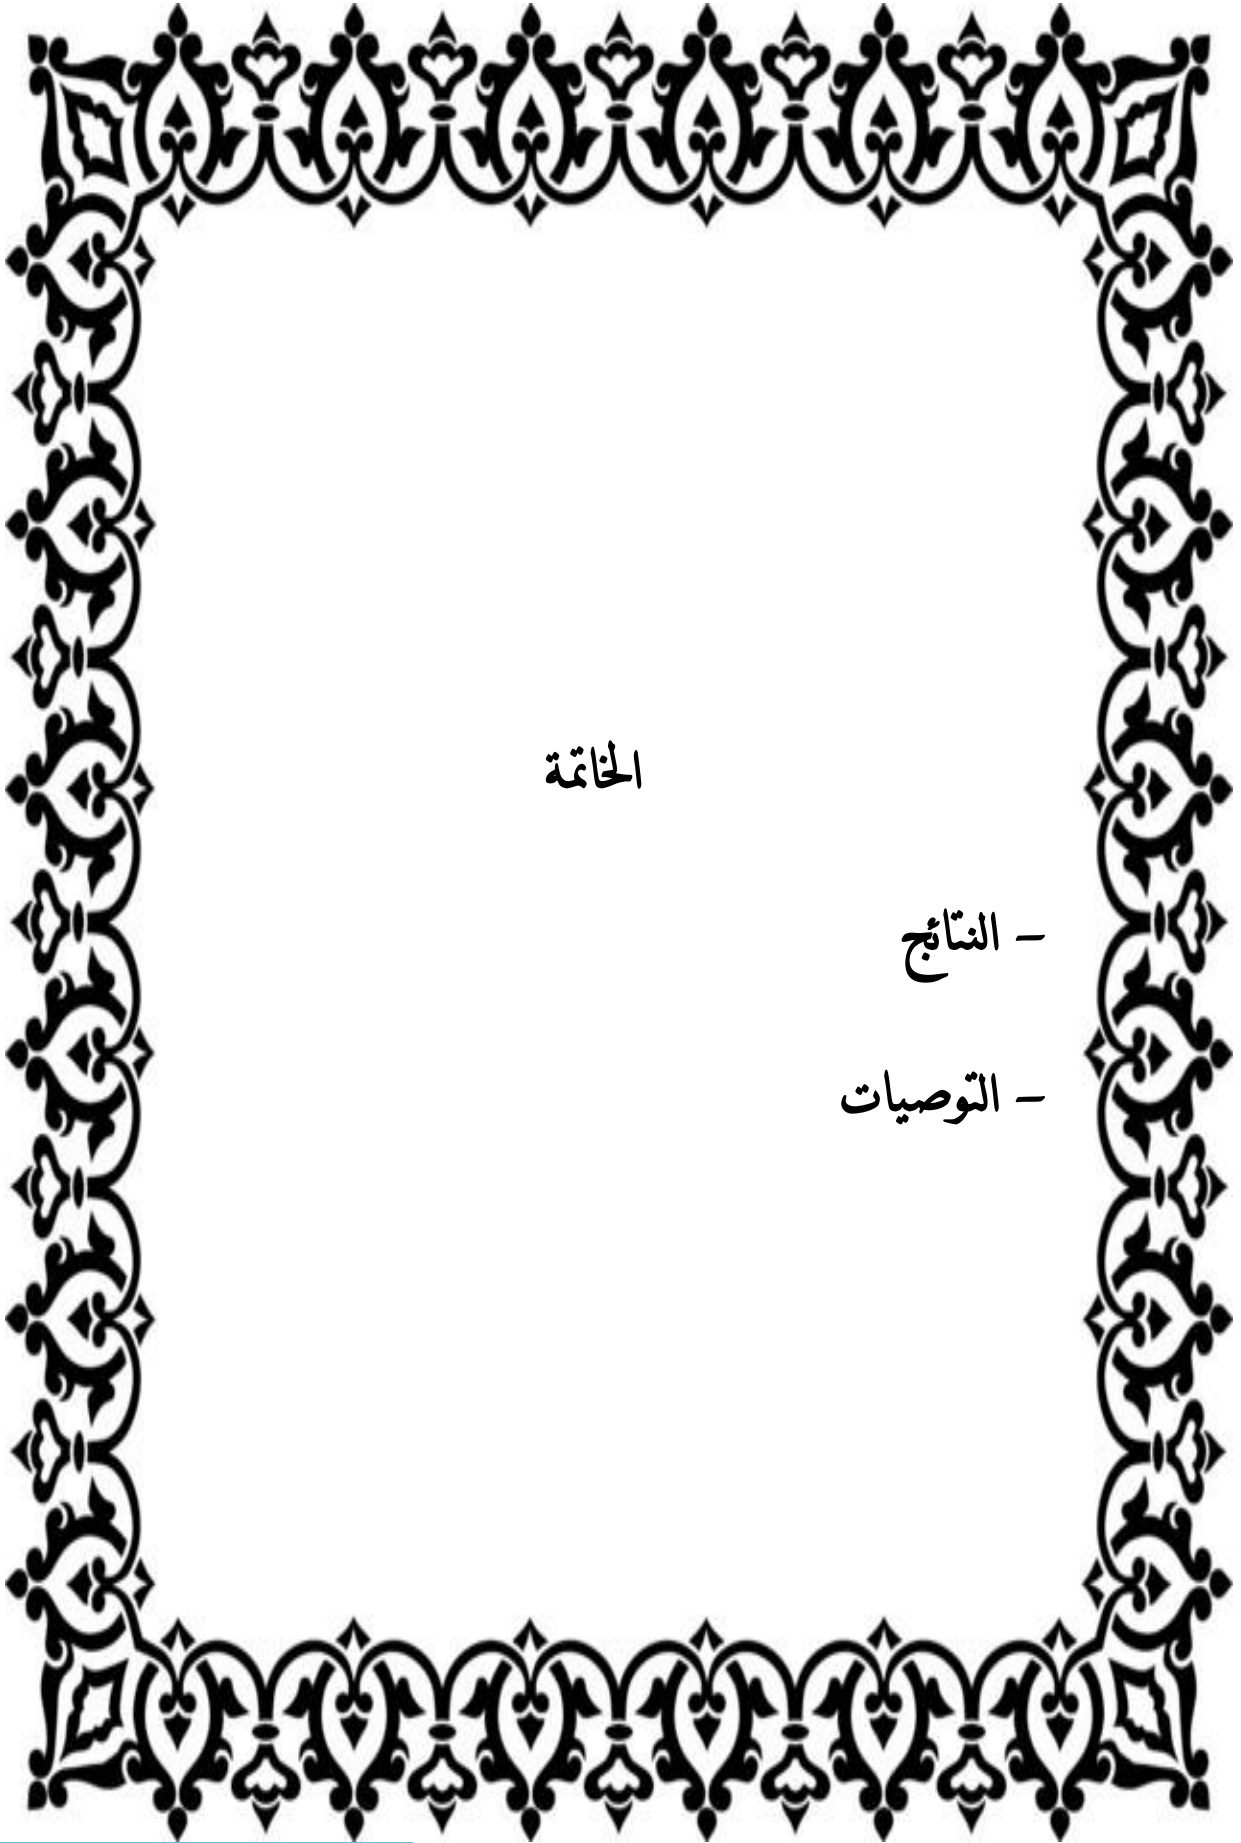 الخاتمة
– النتائج
– التوصيات